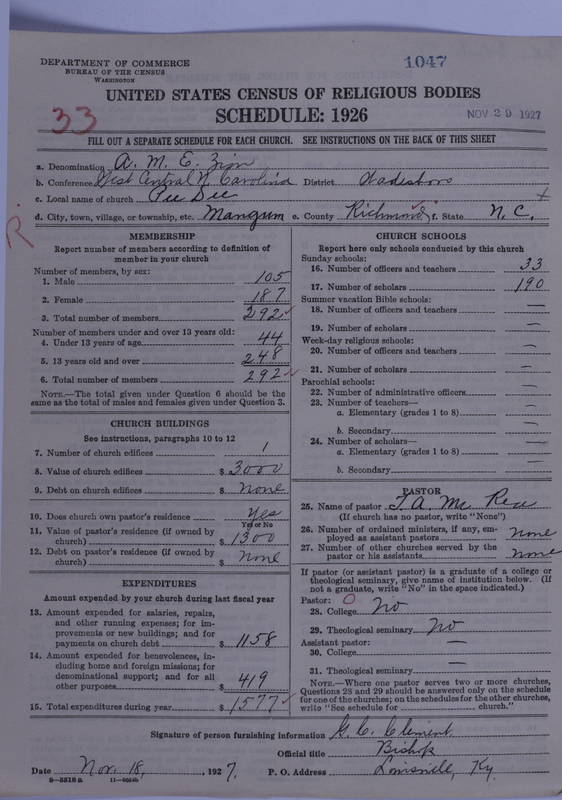 DEPARTMENT OF COMMERCE
BUREAU OF THE CENSUS
WASHINGTON
1047
UNITED STATES CENSUS OF RELIGIOUS BODIES
33
SCHEDULE: 1926
NOV 29 1927
FILL OUT A SEPARATE SCHEDULE FOR EACH CHURCH. SEE INSTRUCTIONS ON THE BACK OF THIS SHEET
a. Denomination A. M. E. Zion
b. Conference West Central N. Carolina District Wadesboro
c. Local name of church Pee Dee
d. City, town, village, or township, etc. Mangum e. County Richmond f. State N. C.
R.
MEMBERSHIP
Report number of members according to definition of
member in your church
Number of members, by sex:
1. Male 105
2. Female 187
3. Total number of members 292
Number of members under and over 13 years old:
4. Under 13 years of age 44
5. 13 years old and over 248
6. Total number of members 292
NOTE.—The total given under Question 6 should be the
same as the total of males and females given under Question 3.
CHURCH BUILDINGS
See instructions, paragraphs 10 to 12
7. Number of church edifices 1
8. Value of church edifices $ 3000
9. Debt on church edifices $ None
10. Does church own pastor's residence Yes
Yes or No
11. Value of pastor's residence (if owned by
church) $ 1300
12. Debt on pastor's residence (if owned by
church) $ None
EXPENDITURES
Amount expended by your church during last fiscal year
13. Amount expended for salaries, repairs,
and other running expenses; for im-
provements or new buildings; and for
payments on church debt $ 1158
14. Amount expended for benevolences, in-
cluding home and foreign missions; for
denominational support; and for all
other purposes $ 419
15. Total expenditures during year $ 1577
CHURCH SCHOOLS
Report here only schools conducted by this church
Sunday schools:
16. Number of officers and teachers 33
17. Number of scholars 190
Summer vacation Bible schools:
18. Number of officers and teachers —
19. Number of scholars —
Week-day religious schools:
20. Number of officers and teachers —
21. Number of scholars —
Parochial schools:
22. Number of administrative officers —
23. Number of teachers—
a. Elementary (grades 1 to 8) —
b. Secondary —
24. Number of scholars— —
a. Elementary (grades 1 to 8) —
b. Secondary —
PASTOR
25. Name of pastor T. A. Mc Rea
(If church has no pastor, write "None")
26. Number of ordained ministers, if any, em-
ployed as assistant pastors None
27. Number of other churches served by the
pastor or his assistants None
If pastor (or assistant pastor) is a graduate of a college or
theological seminary, give name of institution below. (If
not a graduate, write "No" in the space indicated.)
Pastor: O
28. College No
29. Theological seminary No
Assistant pastor: —
30. College
31. Theological seminary —
NOTE.—Where one pastor serves two or more churches,
Questions 28 and 29 should be answered only on the schedule
for one of the churches; on the schedules for the other churches,
write "See schedule for church."
Signature of person furnishing information G. C. Clement
Official title Bishop
Date Nov. 18, 1927. P. O. Address Louisville, Ky.